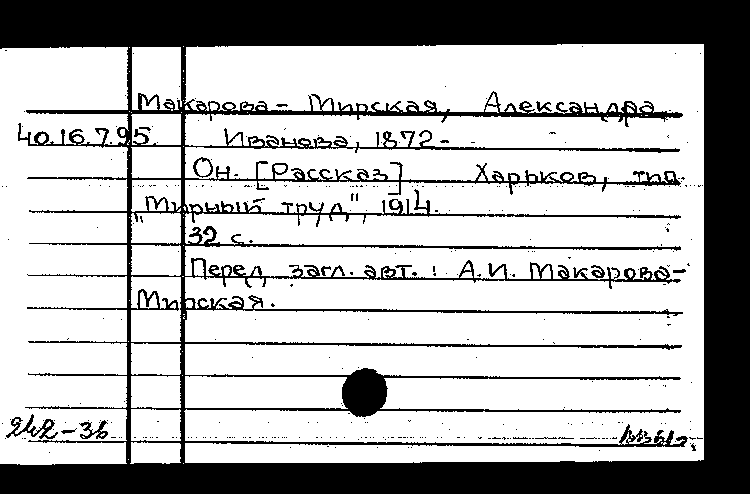 Макарова- Мирская, Александра
40.16.7.95. Иванова, 1872-
Он. [Рассказ] Харьков, тип.
„Мирный труд", 1914.
32 с.
Перед загл. авт.: А.И. Макарова-
Мирская.
242-36